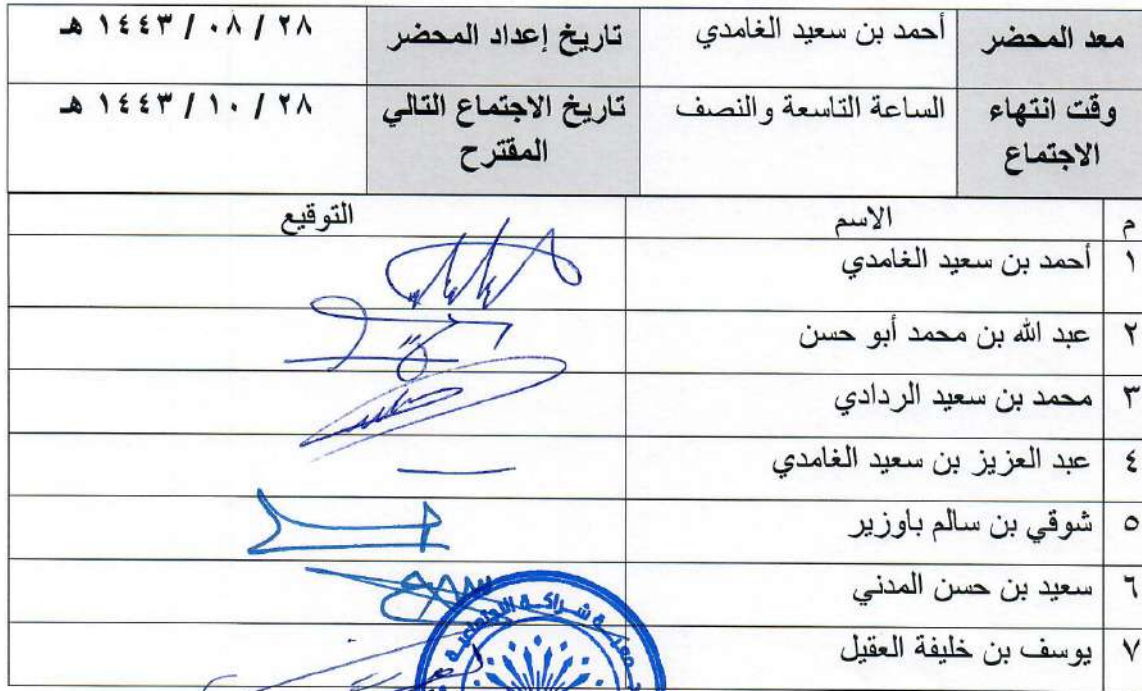 معد المحضر أحمد بن سعيد الغامدي تاريخ إعداد المحضر ٢٨ / ٠٨ / ١٤٤٣ هـ
وقت انتهاء الساعة التاسعة والنصف تاريخ الاجتماع التالي ٢٨ / ١٠ / ١٤٤٣ هـ
الاجتماع المقترح
م الاسم التوقيع
١ أحمد بن سعيد الغامدي
٢ عبد الله بن محمد أبو حسن
٣ محمد بن سعيد الردادي
٤ عبد العزيز بن سعيد الغامدي
٥ شوقي بن سالم باوزير
٦ سعيد بن حسن المدني
٧ يوسف بن خليفة العقيل
جمعية شراكة الاجتماعية